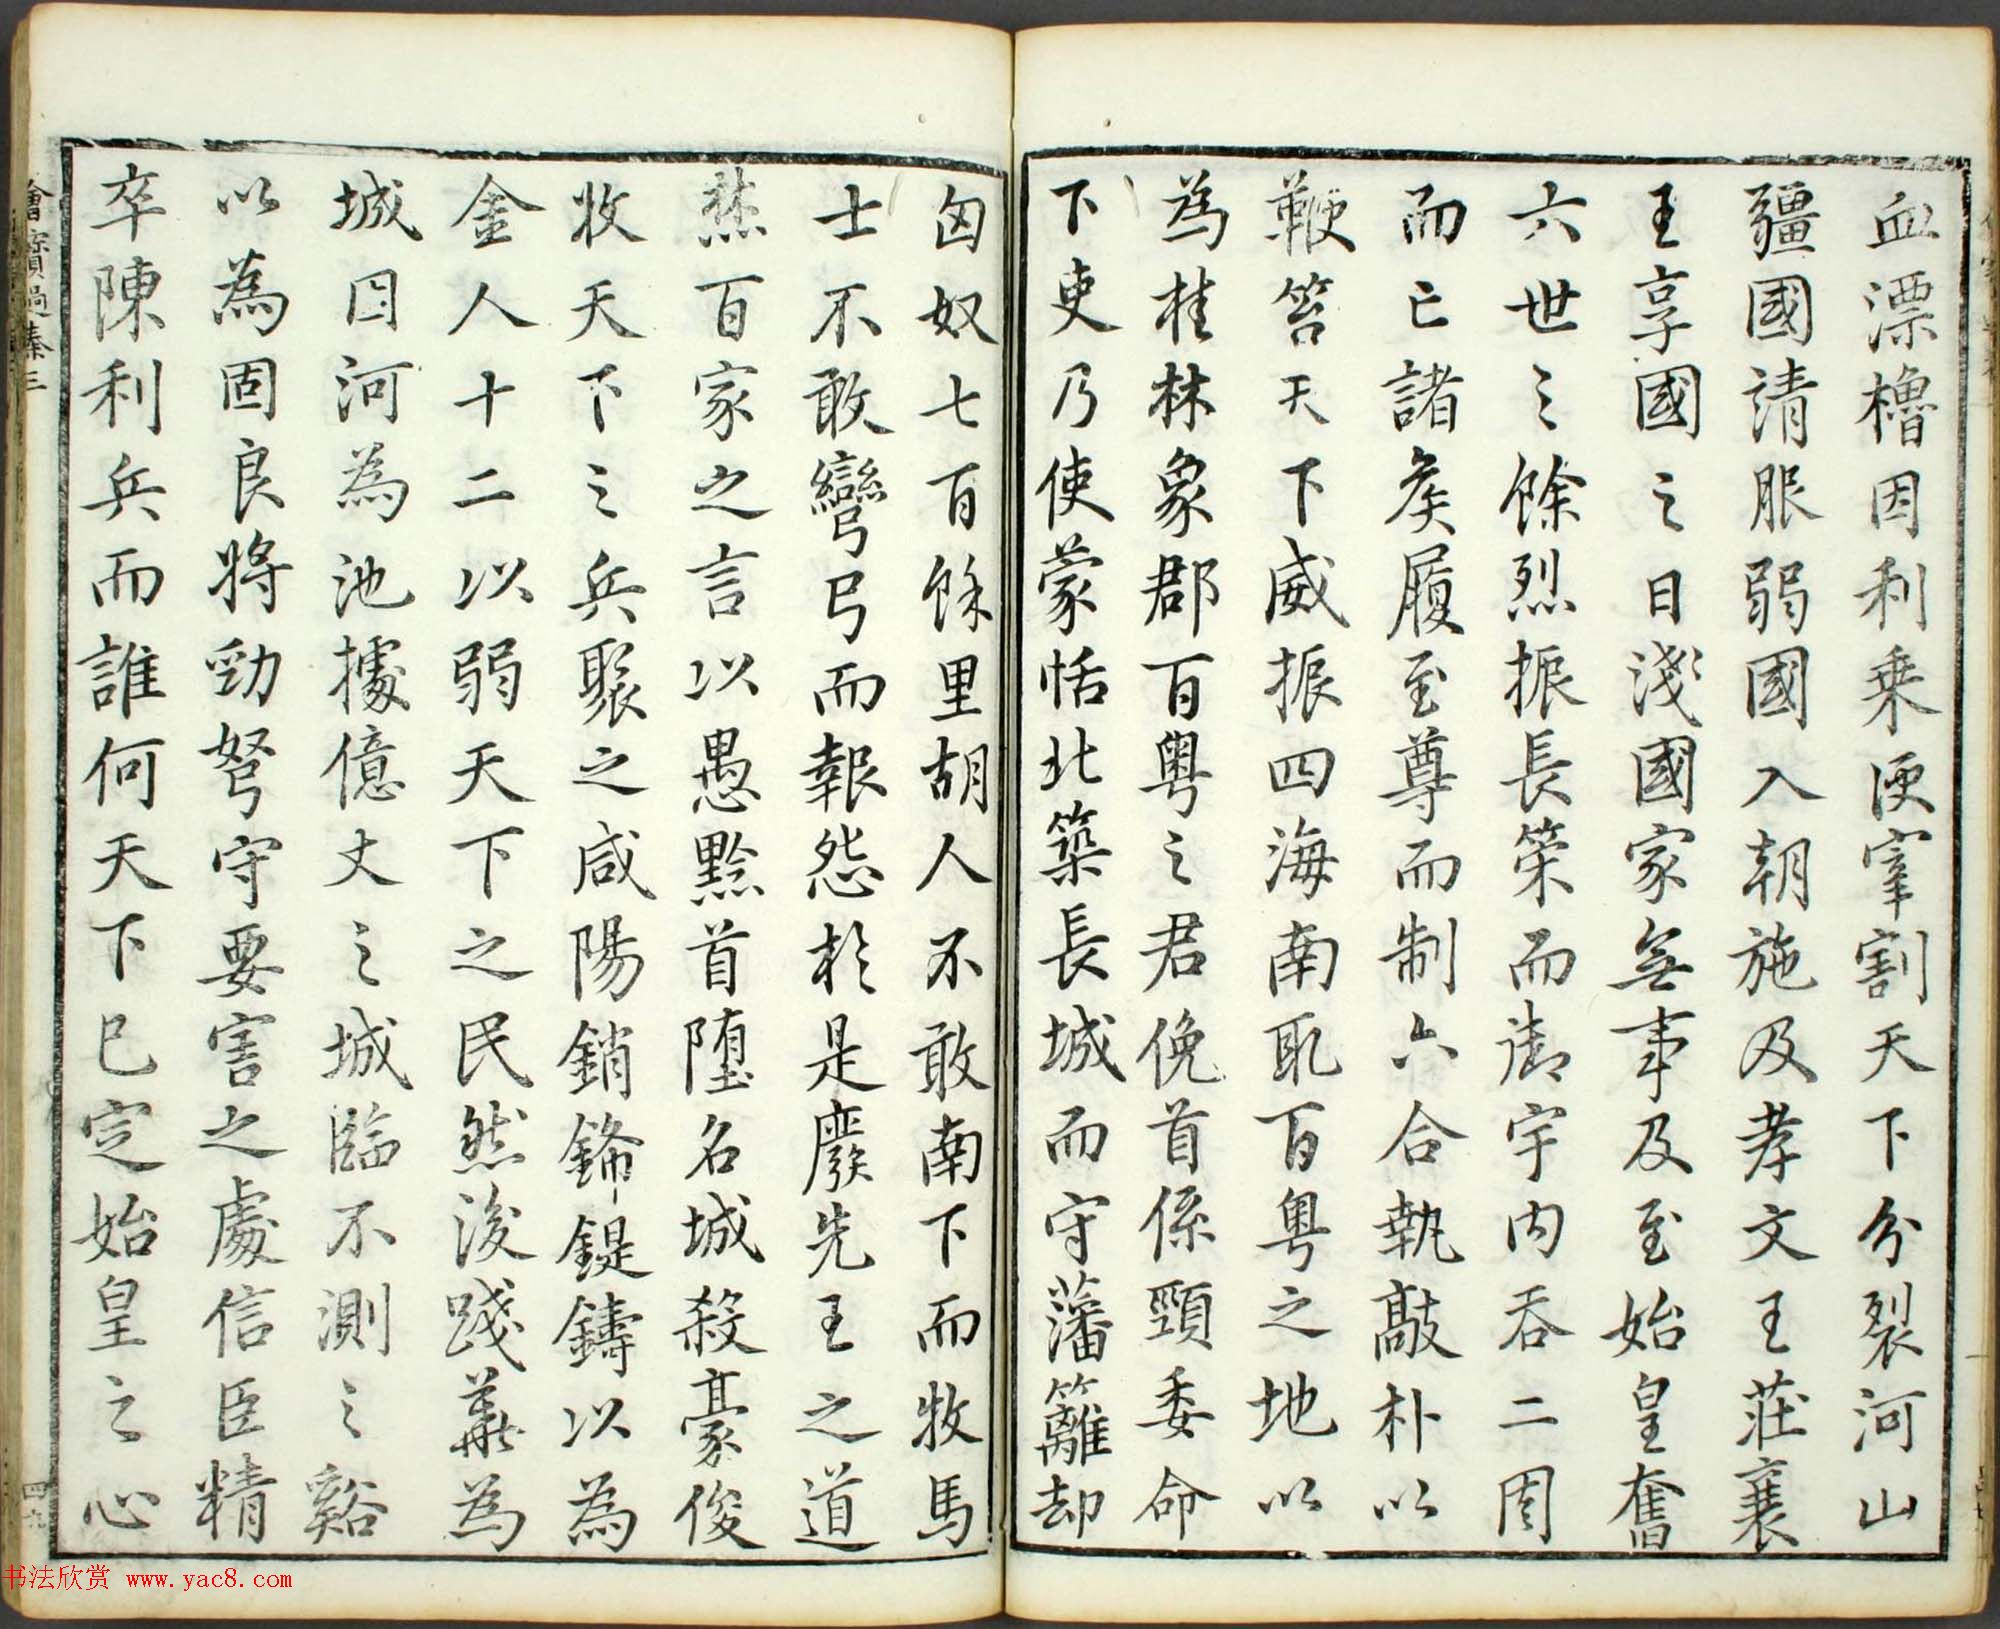 血漂櫓因利乘便宰割天下分裂河山
疆國請服弱國入朝施及孝文王莊襄
王享國之日淺國家無事及至始皇奮
六世之餘烈振長策而御宇内吞二周
而亡諸侯履至尊而制六合執敲朴以
鞭笞天下威振四海南取百粵之地以
為桂林象郡百粵之君俛首係頸委命
下吏乃使蒙恬北築長城而守藩籬却
匈奴七百餘里胡人不敢南下而牧馬
士不敢彎弓而報怨於是廢先王之道
燓百家之言以愚黔首墮名城殺豪俊
收天下之兵聚之咸陽銷鋒鍉鑄以為
金人十二以弱天下之民然後踐華為
城因河為池據億丈之城臨不測之谿
以為固良將勁弩守要害之處信臣精
卒陳利兵而誰何天下已定始皇之心
書法欣赏 www.yac8.com